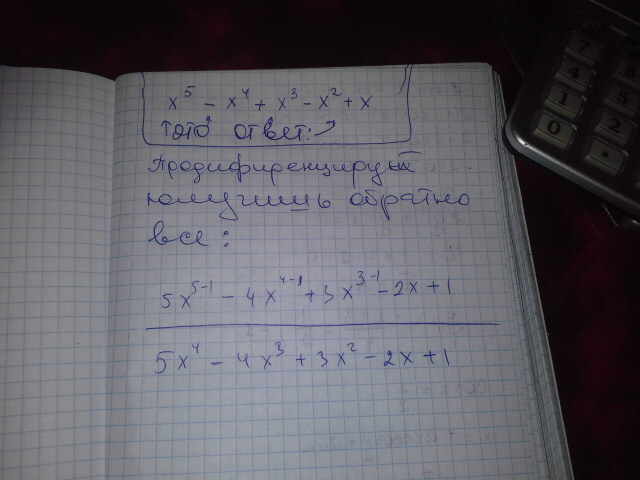 x⁵ - x⁴ + x³ - x² + x
ответ:
Продифиренцируй
получишь обратно
все:
5x⁵⁻¹ - 4x⁴⁻¹ + 3x³⁻¹ - 2x + 1
5x⁴ - 4x³ + 3x² - 2x + 1
7
4
1
2
0